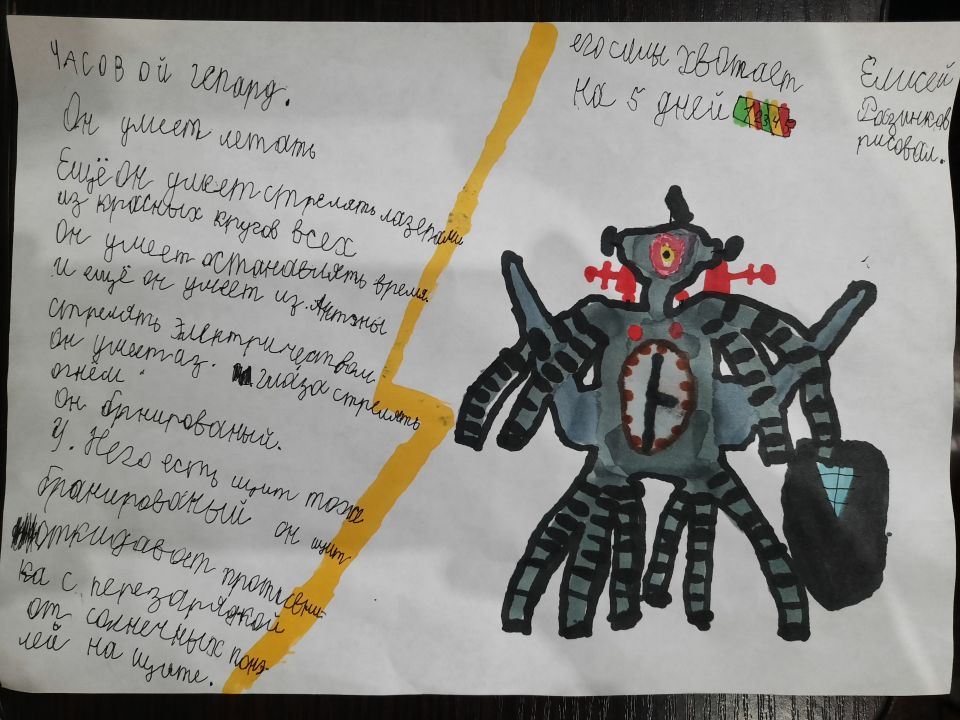 ЧАСОВ ОЙ гепард.
Он умеет летать
Ещё он умеет стрелять лазерами
из красных кругов всех
Он умеет останавлять время.
И ещё он умеет из. Антэны
стрелять электричеством.
Он умеет аз. глаза стрелять
огнём.
Он брнированый.
У. Него есть щит тоже
бранированый он щит
откидавает протевни-
ка с перезарядкой
от солнечных поня-
лей на щите.
его силы хватает
на 5 дней 1 2 3 4 5
Елисей
Рядинков
рисовал.